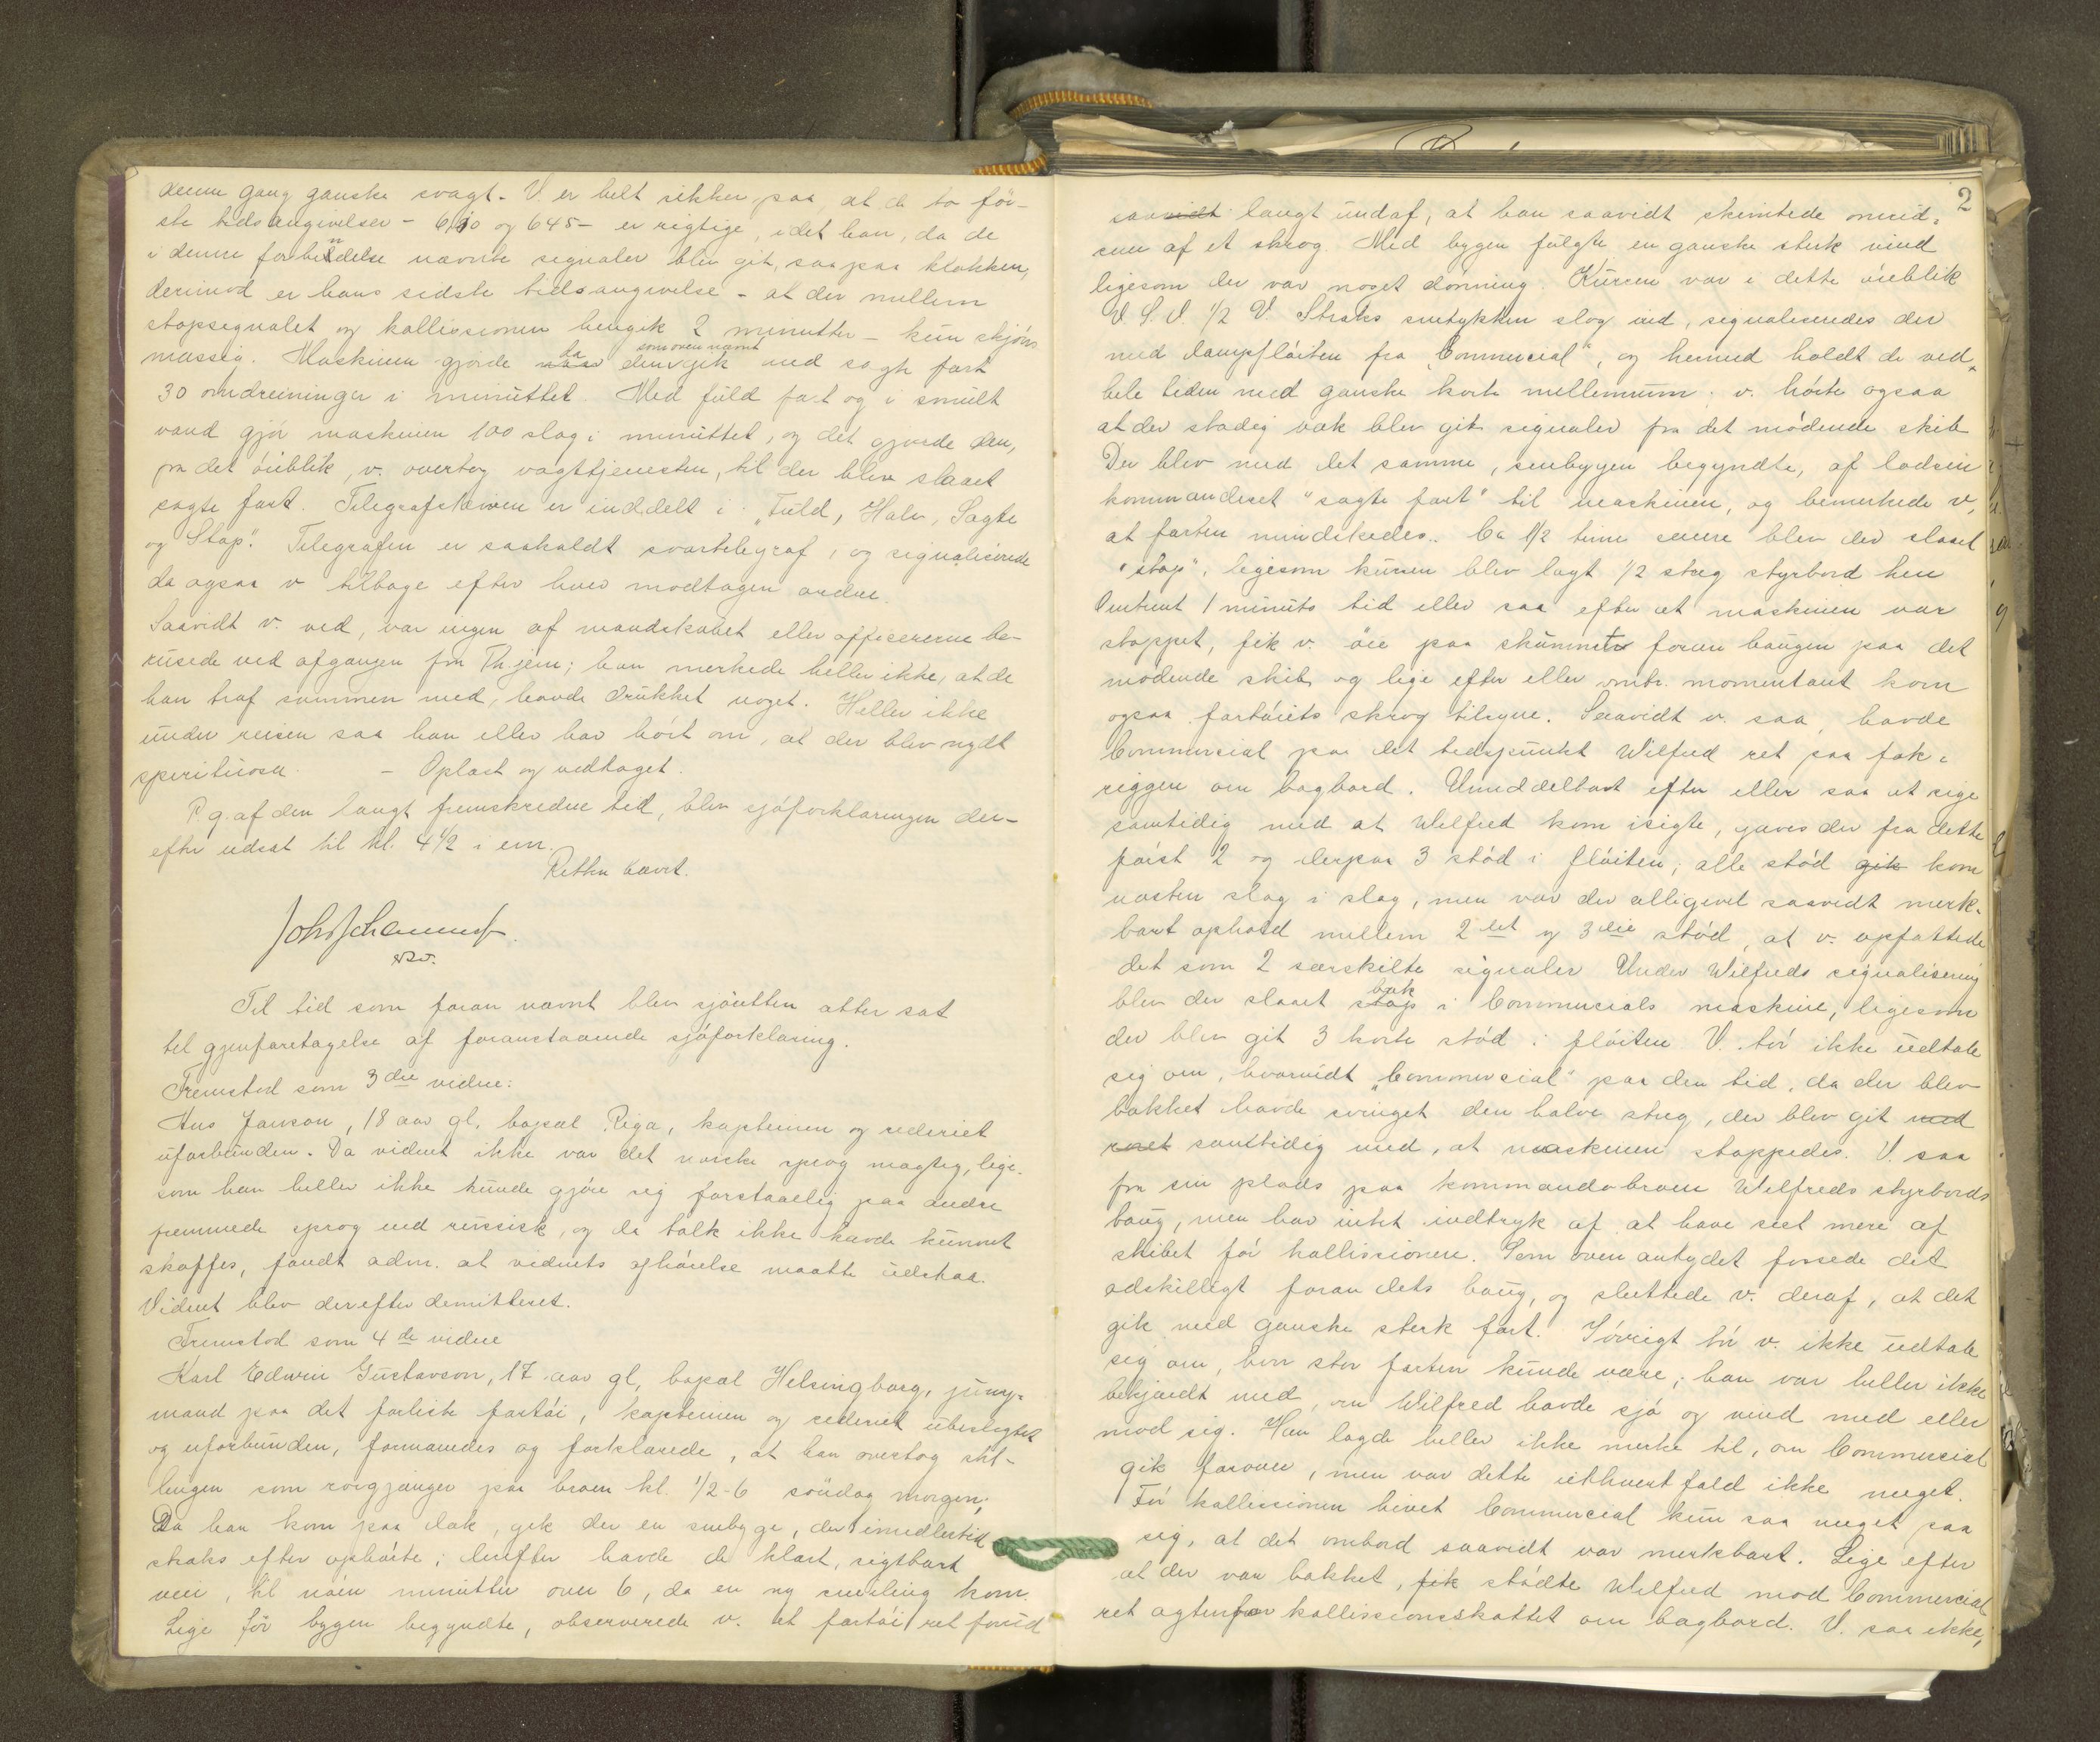 denne gang ganske svagt. V. er helt sikker paa, at de to før-
ste tidsangivelser - 610 og 645 - er rigtige, idet han, da de
i denne forbindelse nævnte signaler blev git, saa paa klokken,
derimod er hans sidste tidsangivelse - at der mellem
stopsignalet og kollissionen hengik 2 minutter - kun skjøns
mæssig. Maskinen gjorde da den som oven nævnt gik med sagte fart
30 omdreininger i minuttet. Med fuld fart og i smult
vand gjør maskinen 100 slag i minuttet, og det gjorde den,
fra det øieblik, v. overtog vagttjenesten, til der blev slaaet
sagte fart. Telegrafskiven er inddelt i "Fuld, Halv, Sagte
og Stop". Telegrafen er saakaldt svartelegraf, og signaliserede
da ogsaa v. tilbage efter hver modtagen ordre.
Saavidt v. ved, var ingen af mandskabet eller officererne be-
rusede ved afgangen fra Th.jem; han merkede heller ikke, at de
han traf sammen med, havde drukket noget. Heller ikke
under reisen saa han eller har hørt om, at der blev nydt
spirituosa. - Oplæst og vedtaget.
P.g. af den langt fremskredne tid, blev sjøforklaringen der-
efter udsat til kl. 4 1/2 i em.
Retten hævet.
Til tid som foran nævnt blev sjøretten atter sat
til gjenforetagelse af foranstaaende sjøforklaring.
Fremstod som 3die vidne:
Ans Janson, 18 aar gl, bopæl Riga, kapteinen og rederiet
uforbunden. Da vidnet ikke var det norske sprog mægtig, lige-
som han heller ikke kunde gjøre sig forstaaelig paa andre
fremmede sprog end russisk, og da tolk ikke havde kunnet
skaffes, fandt adm. at vidnets afhørelse maatte udstaa.
Vidnet blev derefter demitteret.
Fremstod som 4de vidne
Karl Edwin Gustavson, 17 aar gl, bopæl Helsingborg, jung-
mand paa det forliste fartøi, kapteinen og rederiet ubeslegtet
og uforbunden, formanedes og forklarede, at han overtog stil-
lingen som rorgjænger paa broen kl. 1/2-6 søndag morgen;
Da han kom paa dæk, gik der en snebyge, der imidlertid
straks efter ophørte; derefter havde de klart, sigtbart
veir, til nøen minutter over 6, da en ny sneiling kom.
Lige før bygen begyndte, observerede v. et fartøi ret forud
2
saavidt langt undaf, at han saavidt skimtede omrid-
sene af et skrog. Med bygen fulgte en ganske sterk vind
ligesom der var noget dønning. Kursen var i dette øieblik
V. S. V. 1/2 V. Straks snetykken slog ind, signaliseredes der
med dampfløiten fra "Commercial", og hermed holdt de ved
hele tiden med ganske korte mellemrum; v. hørte ogsaa
at der stadig væk blev git signaler fra det mødende skib
Der blev med det samme, snebygen begyndte, af lodsen
kommanderet "sagte fart" til maskinen, og bemerkede v,
at farten mindskedes. Ca 1/2 time senere blev der slaaet
"stop", ligesom kursen blev lagt 1/2 streg styrbord hen
Omtrent 1 minuts tid eller saa efter at maskinen var
stoppet, fik v. øie paa skummet foran baugen paa det
mødende skib og lige efter eller omtr. momentant kom
ogsaa fartøiets skrog tilsyne. Saavidt v. saa, havde
Commercial paa det tidspunkt Wilfred ret paa fok-
riggen om bagbord. Umiddelbart efter eller saa at sige
samtidig med at Wilfred kom isigte, gaves der fra dette
først 2 og derpaa 3 stød i fløiten; alle stød gik kom
næsten slag i slag, men var der alligevel saavidt merk-
bart ophold mellem 2det og 3die stød, at v. opfattede
det som 2 særskilte signaler. Under Wilfreds signalisering
blev der slaaet stop bak i Commercials maskine, ligesom
der blev git 3 korte stød i fløiten. V. tør ikke udtale
sig om, hvorvidt "Commercial" paa den tid, da der blev
bakket havde svinget den halve streg, der blev git med
roret samtidig med, at maskinen stoppedes. V. saa
fra sin plads paa kommandobroen Wilfreds styrbords
baug, men har intet indtryk af at have seet mere af
skibet før kollissionen. Som oven antydet fossede det
adskilligt foran dets baug, og sluttede v. deraf, at det
gik med ganske sterk fart. Iøvrigt tør v. ikke udtale
sig om, hvor stor farten kunde være; han var heller ikke
bekjendt med, om Wilfred havde sjø og vind med eller
mod sig. Han lagde heller ikke merke til, om Commercial
gik forover, men var dette ethvert fald ikke meget.
Før kollissionen hivet Commercial kun saa meget paa
sig, at det ombord saavidt var merkbart. Lige efter
at der var bakket, fik stødte Wilfred mod Commercial
ret agtenfor kollissionsskottet om bagbord. V. saa ikke,